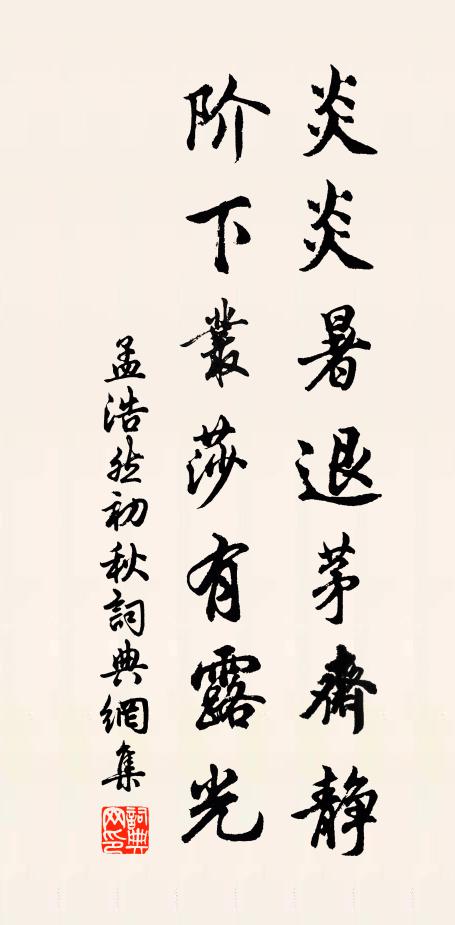 炎炎暑退茅齋静
阶下叢莎有露光
孟浩然初秋詞典網集
詞典网印